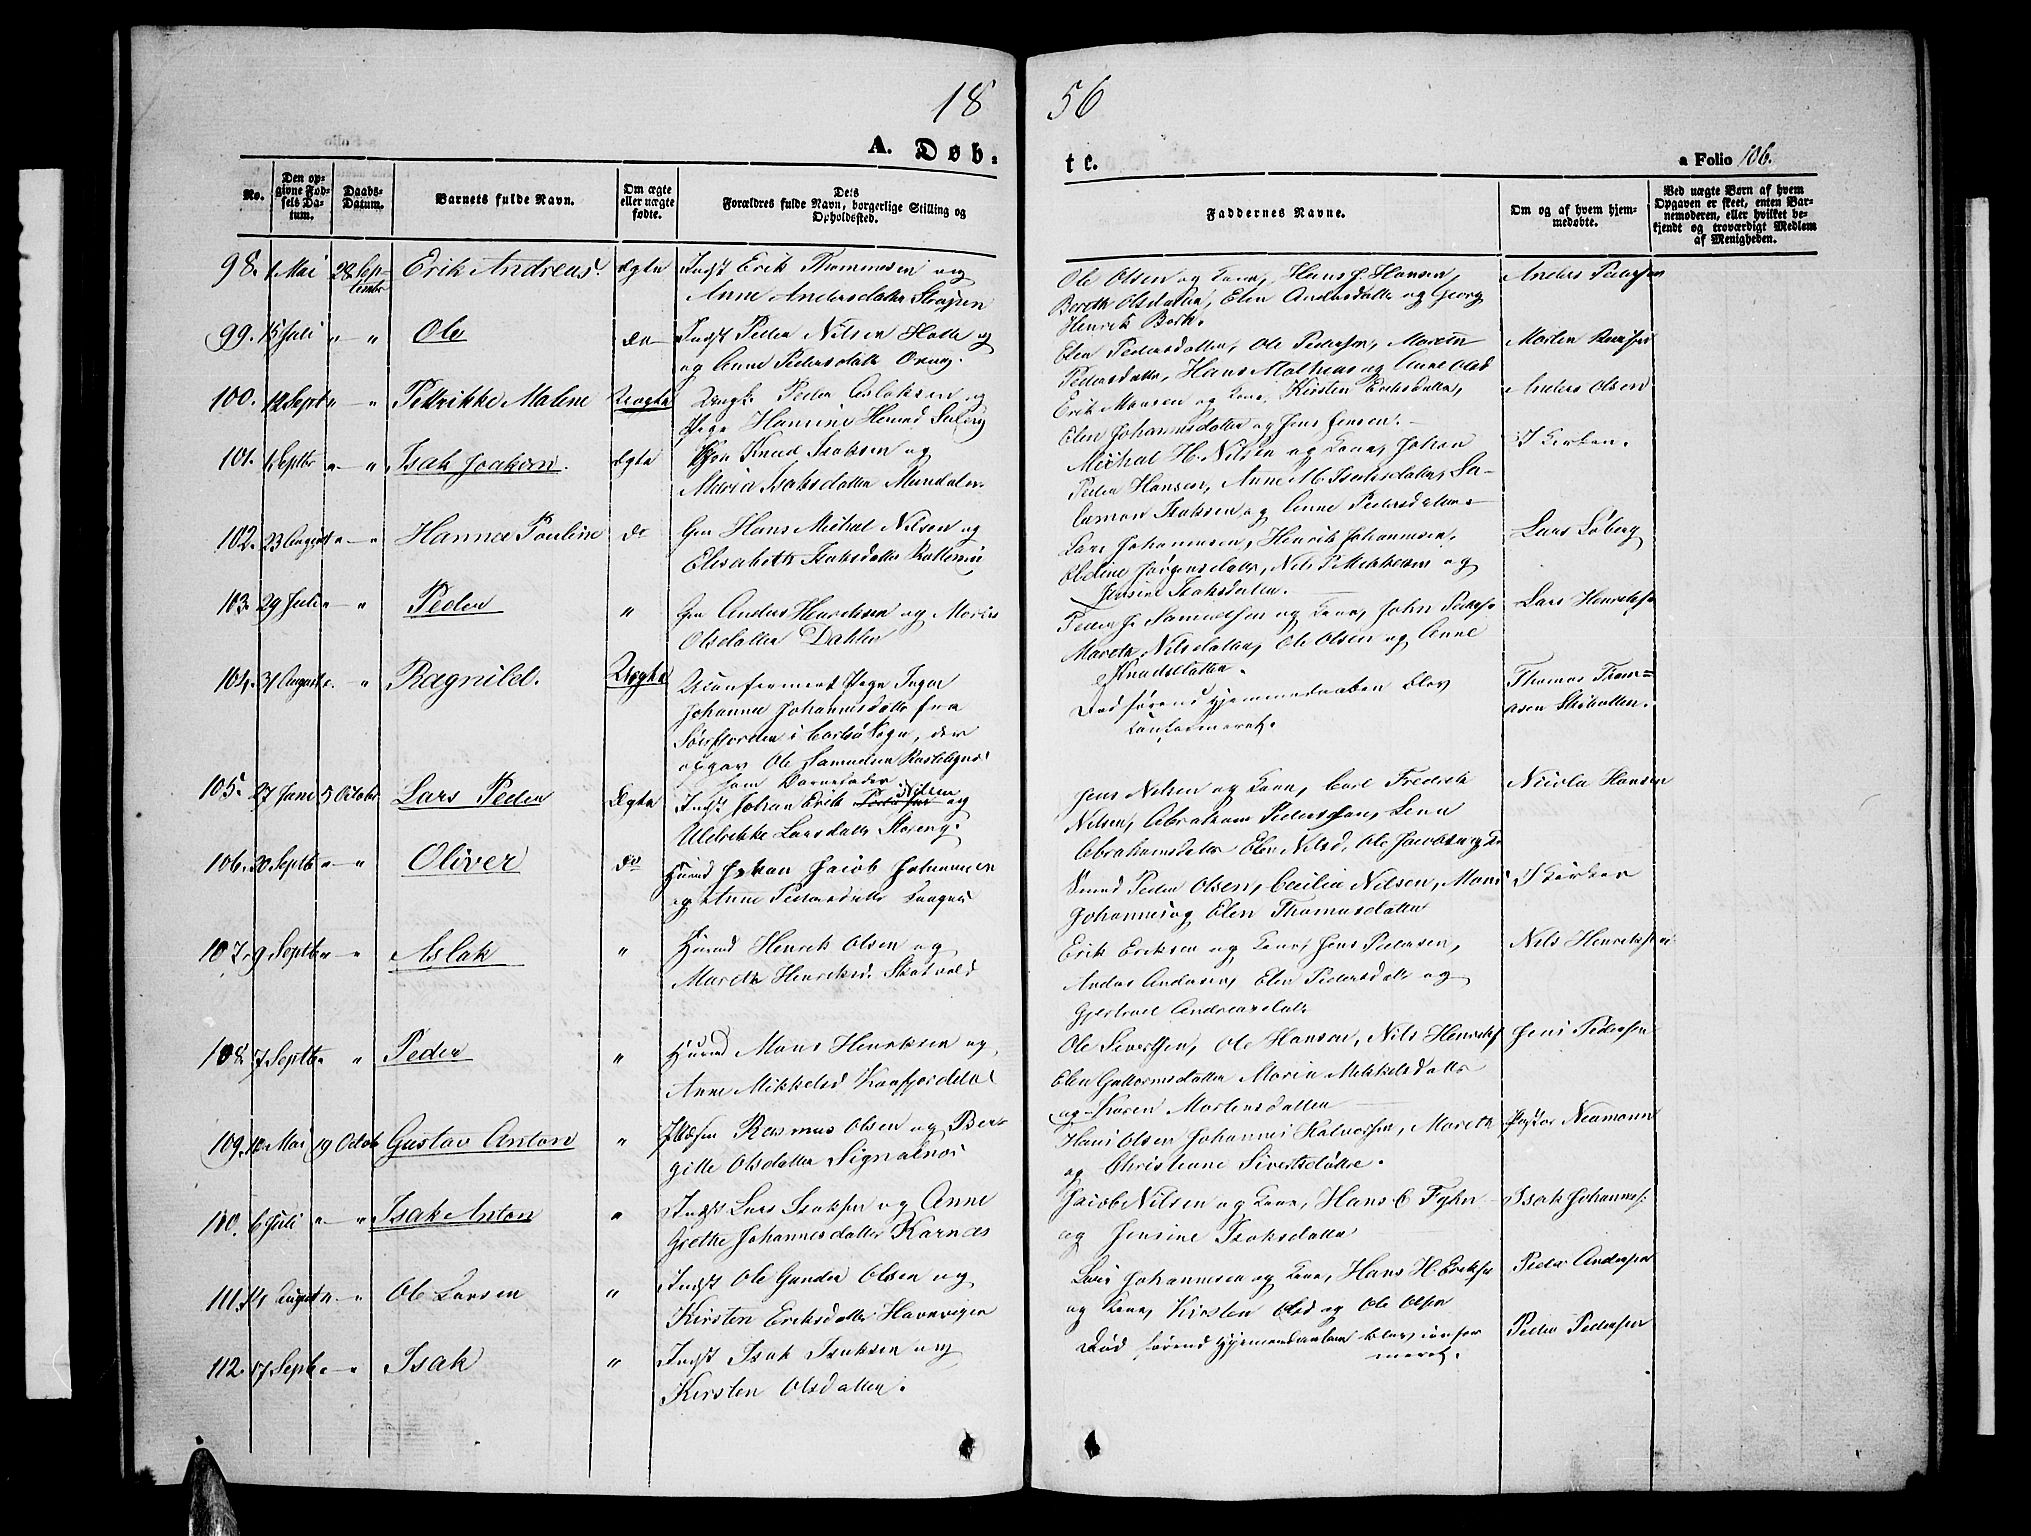 18 56
A. Døb- te.
a Folio 106.
No.
Den op-
givne Fød-
sels Da-
tum.
Daabs-
Datum.
Barnets fulde Navn.
Om ægte
eller uægte
fødte.
Dets
Forældres fulde Navn, borgerlige Stilling og
Opholdssted.
Faddernes Navne.
Om og af hvem hjem-
medøbte.
Ved uægte Børn af hvem
Opgaven er skeet, enten Bar-
nemoderen, eller hvilket be-
kjendt og troværdigt Medlem
af Menigheden.
98. 1 Mai 28 Sep-
tembr
Erik Andreas. Ægte Indst Erik Thommesen og
Anne Andersdatter
Ole Olsen og Kone, Hans J. Hansen,
Bereth Olsdatter, Elen Andersdatter og Georg
Henrik Bork.
Anders Pedersen
99. 15 Juli " " Ole do Indst Peder Nilsen Hatte og
og Anne Pedersdatter
Elen Pedersdatter, Ole Pedersen, Mareth
Pedersdatter, Hans Mathias og Anne Olsd
Morten
100. 12 Sept " " Petrikke Malene Uægte Ungk. Peder Aslaksen og
Pige Hansine
Erik Monsen og Kone, Kirsten Eriksdatter,
Elen Johannesdatter og Jens Jensen.
Anders Olsen
101. 1 Septbr " " Isak Joakim. Ægte Knud Isaksen og
Maria Isaksdatter
Michal H. Nilsen og Kone, Johan
Peder Hansen, Anne M. Isaksdatter, Sa-
lamon Isaksen og Anne Pedersdatter
I Kirken.
102. 23 August " " Hanna Pouline do Hans Michal Nilsen og
Elisabeth Isaksdatter
Lars Johannesen, Henrik Johannesen,
Oldine Jørgensdatter, Nils P. Mikkelsen og
Jensine Isaksdatter.
Lars Soberg
103. 29 Juli " " Peder " Anders Henriksen og Maria
Olsdatter Dalen
Peder J. Samuelsen og Kone, John Peders.
Mareth Nilsdatter, Ole Olsen og Anne
Knudsdatter.
Lars Henriksen
104. 31 August " " Ragnild. Uægte Uconfirmert Pige Inger
Johanne Johannesdatter fra
Sørfjorden i Carlsø Sogn, der
opgav Ole Samuelsen
som Barnefader
Død førend Hjemmedaaben blev
confirmeret.
Thomas Thom-
asen Skibotten.
105. 27 Juni 5 Octobr Lars Peder Ægte Indst Johan Erik Nilsen og
Uldrikke Larsdatter Storeng.
Jens Nilsen og Kone, Carl Fredrik
Nilsen, Abraham Pedersen, Lena
Abrahamsdatter Elen Nilsd, Ole Jacobsen
Nicola Hansen
106. 20 Septbr " " Oliver do Huusmd Johan Jacob Johannesen
og Anne Pedersdatter
Smed Peder Olsen, Cecilia Nilsen, Mons
Johannes og Elen Thomasdatter
I Kirken
107. 9 Septbr " " Aslak " Huusmd Henrik Olsen og
Mareth Henriksd. Skatvold
Erik Eriksen og Kone, Jens Pedersen,
Anders Andersen, Elen Pedersdatter og
Gjertrud Andreasdatt
Nils Henriksen
108. 7 Septbr " Peder " Huusmd Mons Henriksen og
Anne Mikkelsd Kaafjorddal
Ole Sivertsen, Ole Hansen, Nils Henriks
Elen Guttormsdatter Maria Mikkelsdatter
og Karen Mortensdatter
Jens Pedersen
109. 10 Mai 19 Octob Gustav Anton " Rasmus Olsen og Ber-
gitte Olsdatter Signalnes
Hans Olsen Johannes Halvorsen, Mareth
og Christiane Sivertsdatter.
Pastor Neumann
110. 6 Juli " " Isak Anton " Indst Lars Isaksen og Anne
Grethe Johannesdatter Karnes
Jacob Nilsen og Kone, Hans C Fyhn
og Jensine Isaksdatter
Isak Johannes:
111. 14 August " " Ole Larsen " Indst Ole Gunder Olsen og
Kirsten Eriksdatter Havnvigen
Lars Johannesen og Kone, Hans H. Eriksen
og Kone, Kirsten Olsd og Ole Olsen
Peder Andersen
112. 17 Septb " " Isak " Indst Isak Isaksen og
Kirsten Olsdatter.
Død førend Hjemmedaaben blev confir
meret.
Peder Pedersen